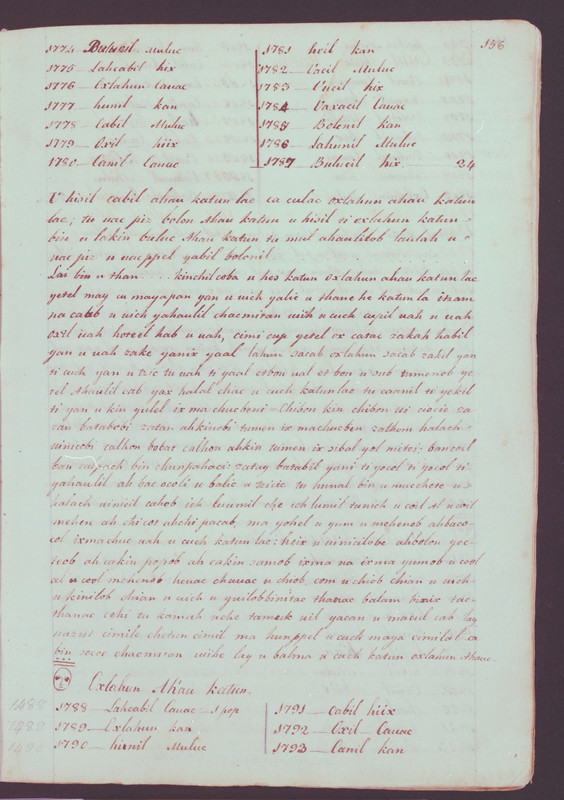 156
1774 Buluil Muluc
1775 Lahcabil hix
1776 Oxlahun Cauac
1777 hunil kan
1778 Cabil Muluc
1779 Oxil hiix
1780 Canil Cauac
1781 hoil kan
1782 Uacil Muluc
1783 Uucil hix
1784 Uaxacil Cauac
1785 Bolonil kan
1786 Lahunil Muluc
1787 Buluil hix 24
U hisil cabil ahau katun lae ca culac oxlahun ahau katun
lae; tu uac piz bolon Ahau katun u hisil ti oxlahun katun
bin u lakin buluc Ahau katun tu mul ahaulilob laulah u
uac piz u uacppel yabil bolonil.
Lai bin u than .... kinchil coba u hes katun Oxlahun ahau katun lae
yetel may cu mayapan yan u uich yalic u thane he katun la
na caab u uich yahaulil chacmitan uiih u cuch cupil uah u uah
oxil uah hoteel hab u uah, cimi cup yetel ox catac zakah habil
yan u uah zake yanix yaal lahun zacab oxlahun zacab zabil yan
ti cuch yan u
yetel Ahaulil cab yax halal chac u cuch katun lae tu caanil ti yekil
ti yan u kin yulel ix ma chucbeni = Chibon kin chibon
batabobi zatan ahkinobi tumen ix machucben zalhom halach
uinicobi zalhom botat zalhom ahkin tumen ix zibal yol
bin chunpahoci zatay batabil yani ti yocol ti yocol ti
yahaulil ah bac ocoli u balic u tu hunal bin u mucchete u
halach uinicil cahob ich luumil che ich lumil tunich u coil al u coil
mehen ah chicot uhchi pacab, ma yohel u yum u mehenob ahbaco
col ixmachuc uah u cuch katun lae: heix u uinicilobe ahbolon yoc
teob ah cakin popob ah cakin zamob ixma na ixma yumob u cool
al u cool mehenob heuac chauac u chob, com u chiob chian u uich
u kinilob chian u uich u yuilob thanac balam
thanac cehi tu kamah nehe uil yacan u manil cab lay
cimile chetun cimil ma hunppel u cuch maya cimilil ca
bin chacmitan uiihe lay u balma u cuch katun oxlahun Ahaue
Oxlahun Ahau katun.
1488 1788 Lahcabil Cauac 1 pop
1489 1789 Oxlahun kan
1490 1790 hunil Muluc
1791 Cabil hiix
1792 Oxil Cauac
1793 Canil kan